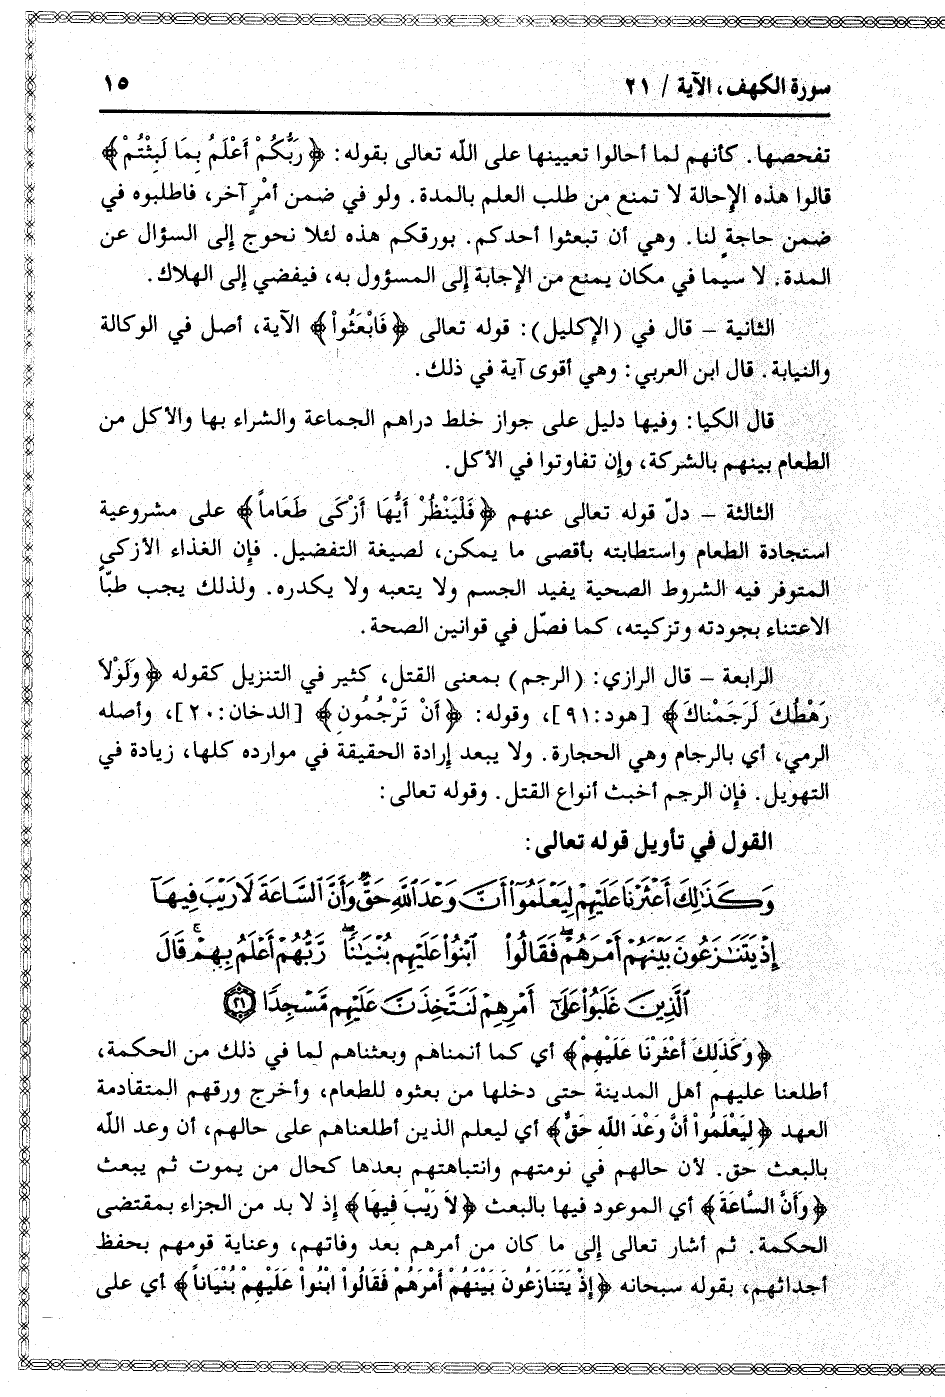 سورة الكهف، الآية / ٢١
١٥
تفحصها. كأنهم لما أحالوا تعيينها على اللّه تعالى بقوله: ﴿رَبُّكُمْ أَعْلَمُ بِمَا لَبِثْتُمْ﴾
قالوا هذه الإحالة لا تمنع من طلب العلم بالمدة. ولو في ضمن أمْرٍ آخر، فاطلبوه في
ضمن حاجةٍ لنا. وهي أن تبعثوا أحدكم. بورقكم هذه لئلا نحوج إلى السؤال عن
المدة. لا سيما في مكان يمنع من الإجابة إلى المسؤول به، فيفضي إلى الهلاك.
الثانية – قال في (الإكليل): قوله تعالى ﴿فَابْعَثُواْ﴾ الآية، أصل في الوكالة
والنيابة. قال ابن العربي: وهي أقوى آية في ذلك.
قال الكيا: وفيها دليل على جواز خلط دراهم الجماعة والشراء بها والأكل من
الطعام بينهم بالشركة، وإن تفاوتوا في الأكل.
الثالثة – دلّ قوله تعالى عنهم ﴿فَلْيَنْظُرْ أَيُّهَا أَزْكَى طَعَاماً﴾ على مشروعية
استجادة الطعام واستطابته بأقصى ما يمكن، لصيغة التفضيل. فإن الغذاء الأزكى
المتوفر فيه الشروط الصحية يفيد الجسم ولا يتعبه ولا يكدره. ولذلك يجب طبّاً
الاعتناء بجودته وتزكيته، كما فصّل في قوانين الصحة.
الرابعة – قال الرازي: (الرجم) بمعنى القتل، كثير في التنزيل كقوله ﴿وَلَوْلاَ
رَهْطُكَ لَرَجَمْناكَ﴾ [هود:٩١]، وقوله: ﴿أَنْ تَرْجُمُونِ﴾ [الدخان:٢٠]، وأصله
الرمي، أي بالرجام وهي الحجارة. ولا يبعد إرادة الحقيقة في موارده كلها، زيادة في
التهويل. فإن الرجم أخبث أنواع القتل. وقوله تعالى:
القول في تأويل قوله تعالى:
وَكَذَٰلِكَ أَعْثَرْنَا عَلَيْهِمْ لِيَعْلَمُوٓا۟ أَنَّ وَعْدَ ٱللَّهِ حَقٌّ وَأَنَّ ٱلسَّاعَةَ لَا رَيْبَ فِيهَآ
إِذْ يَتَنَٰزَعُونَ بَيْنَهُمْ أَمْرَهُمْ ۖ فَقَالُوا۟ ٱبْنُوا۟ عَلَيْهِم بُنْيَٰنًا ۖ رَّبُّهُمْ أَعْلَمُ بِهِمْ ۚ قَالَ
ٱلَّذِينَ غَلَبُوا۟ عَلَىٰٓ أَمْرِهِمْ لَنَتَّخِذَنَّ عَلَيْهِم مَّسْجِدًا ٢١
﴿وَكَذَلِكَ أَعْثَرْنَا عَلَيْهِمْ﴾ أي كما أنمناهم وبعثناهم لما في ذلك من الحكمة،
أطلعنا عليهم أهل المدينة حتى دخلها من بعثوه للطعام، وأخرج ورقهم المتقادمة
العهد ﴿لِيَعْلَمُواْ أَنَّ وَعْدَ اللّهِ حَقٌّ﴾ أي ليعلم الذين أطلعناهم على حالهم، أن وعد اللّه
بالبعث حق. لأن حالهم في نومتهم وانتباهتهم بعدها كحال من يموت ثم يبعث
﴿وَأَنَّ السَّاعَةَ﴾ أي الموعود فيها بالبعث ﴿لاَ رَيْبَ فِيهَا﴾ إذ لا بد من الجزاء بمقتضى
الحكمة. ثم أشار تعالى إلى ما كان من أمرهم بعد وفاتهم، وعناية قومهم بحفظ
أجداثهم، بقوله سبحانه ﴿إِذْ يَتَنَازَعُونَ بَيْنَهُمْ أَمْرَهُمْ فَقَالُواْ ابْنُواْ عَلَيْهِمْ بُنْيَاناً﴾ أي على